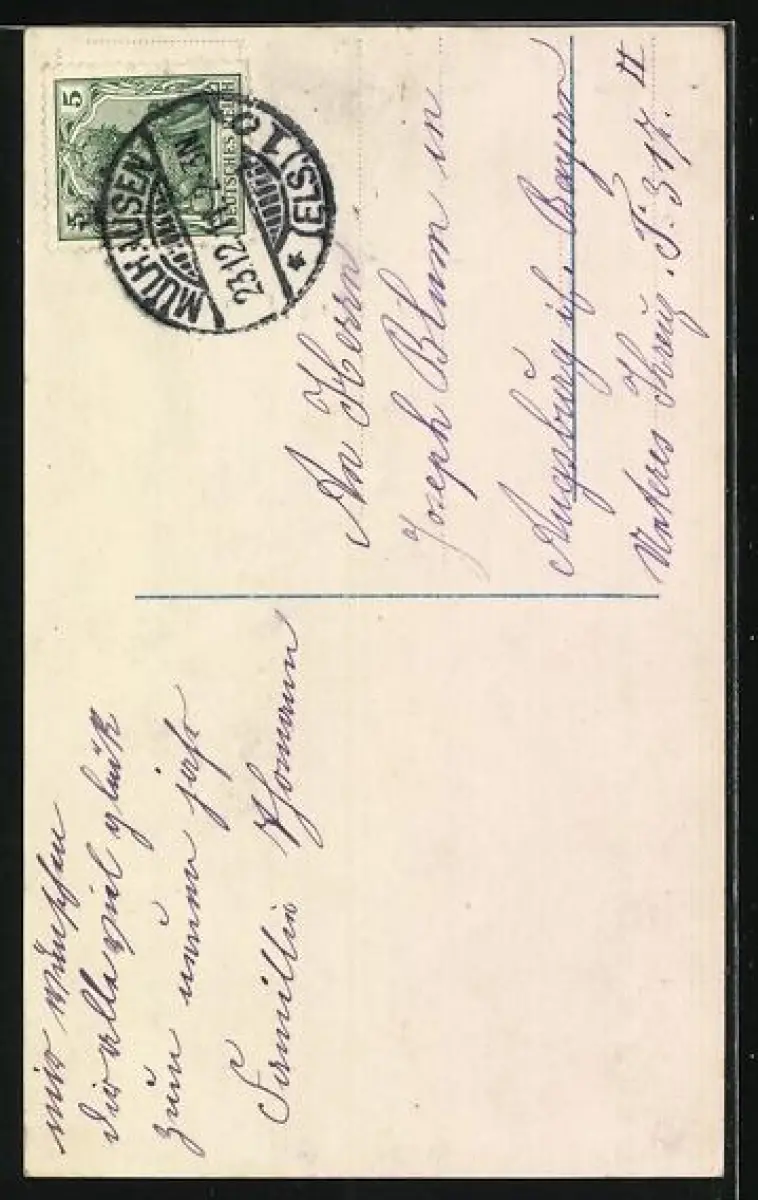 mir wünschen
dir alle viel glück
zum neuen jahr
Familie Thomann
5
5
DEUTSCHES REICH
MÜLHAUSEN (ELS.) 1
23.12.
An Herrn
Joseph Blum in
Augsburg i/ Bayern
Unteres Kreuz. F. 317. II